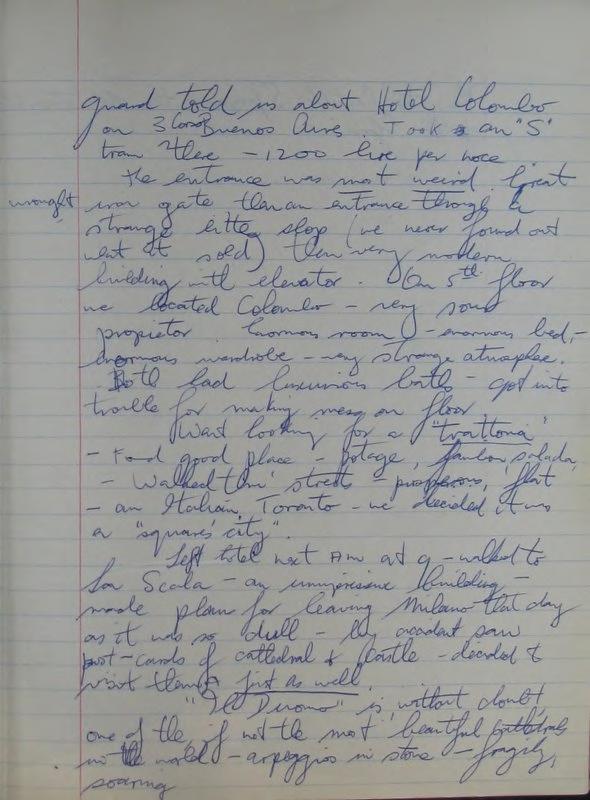 guard told us about Hotel Colombo
on 3 Corso Buenos Aires. Took an "S"
tram there - 1200 lire per noce.
The entrance was most weird. Great
wrought iron gate then an entrance through a
strange little shop (we never found out
what it sold) then very modern
building with elevator. On 5th floor
we located Colombo - very sour
propietor. Enormous room - enormous bed, -
enormous wardrobe - very strange atmosphere.
Both had luxurious bath - got into
trouble for making mess on floor
Went looking for a "trattoria"
- Found good place - potage, jambon, salada,
- Walked thru' streets - prosperous, flat
- an Italian Toronto - we decided it was
a "squares city".
Left hotel next AM at 9 - walked to
La Scala - an unimpressive building -
made plans for leaving Milano that day
as it was so dull - by accident saw
post-cards of cathedral & castle - decided to
visit them just as well.
"Il Duomo" is, without doubt,
one of the, if not the most beautiful cathedrals
in the world - arpeggios in stone - fragile,
soaring